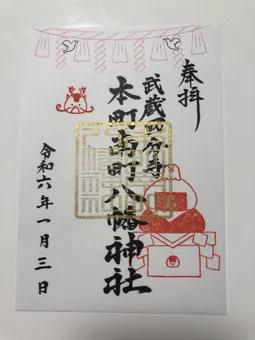 奉拝
武蔵国分寺
本町南町八幡神社
令和六年一月三日